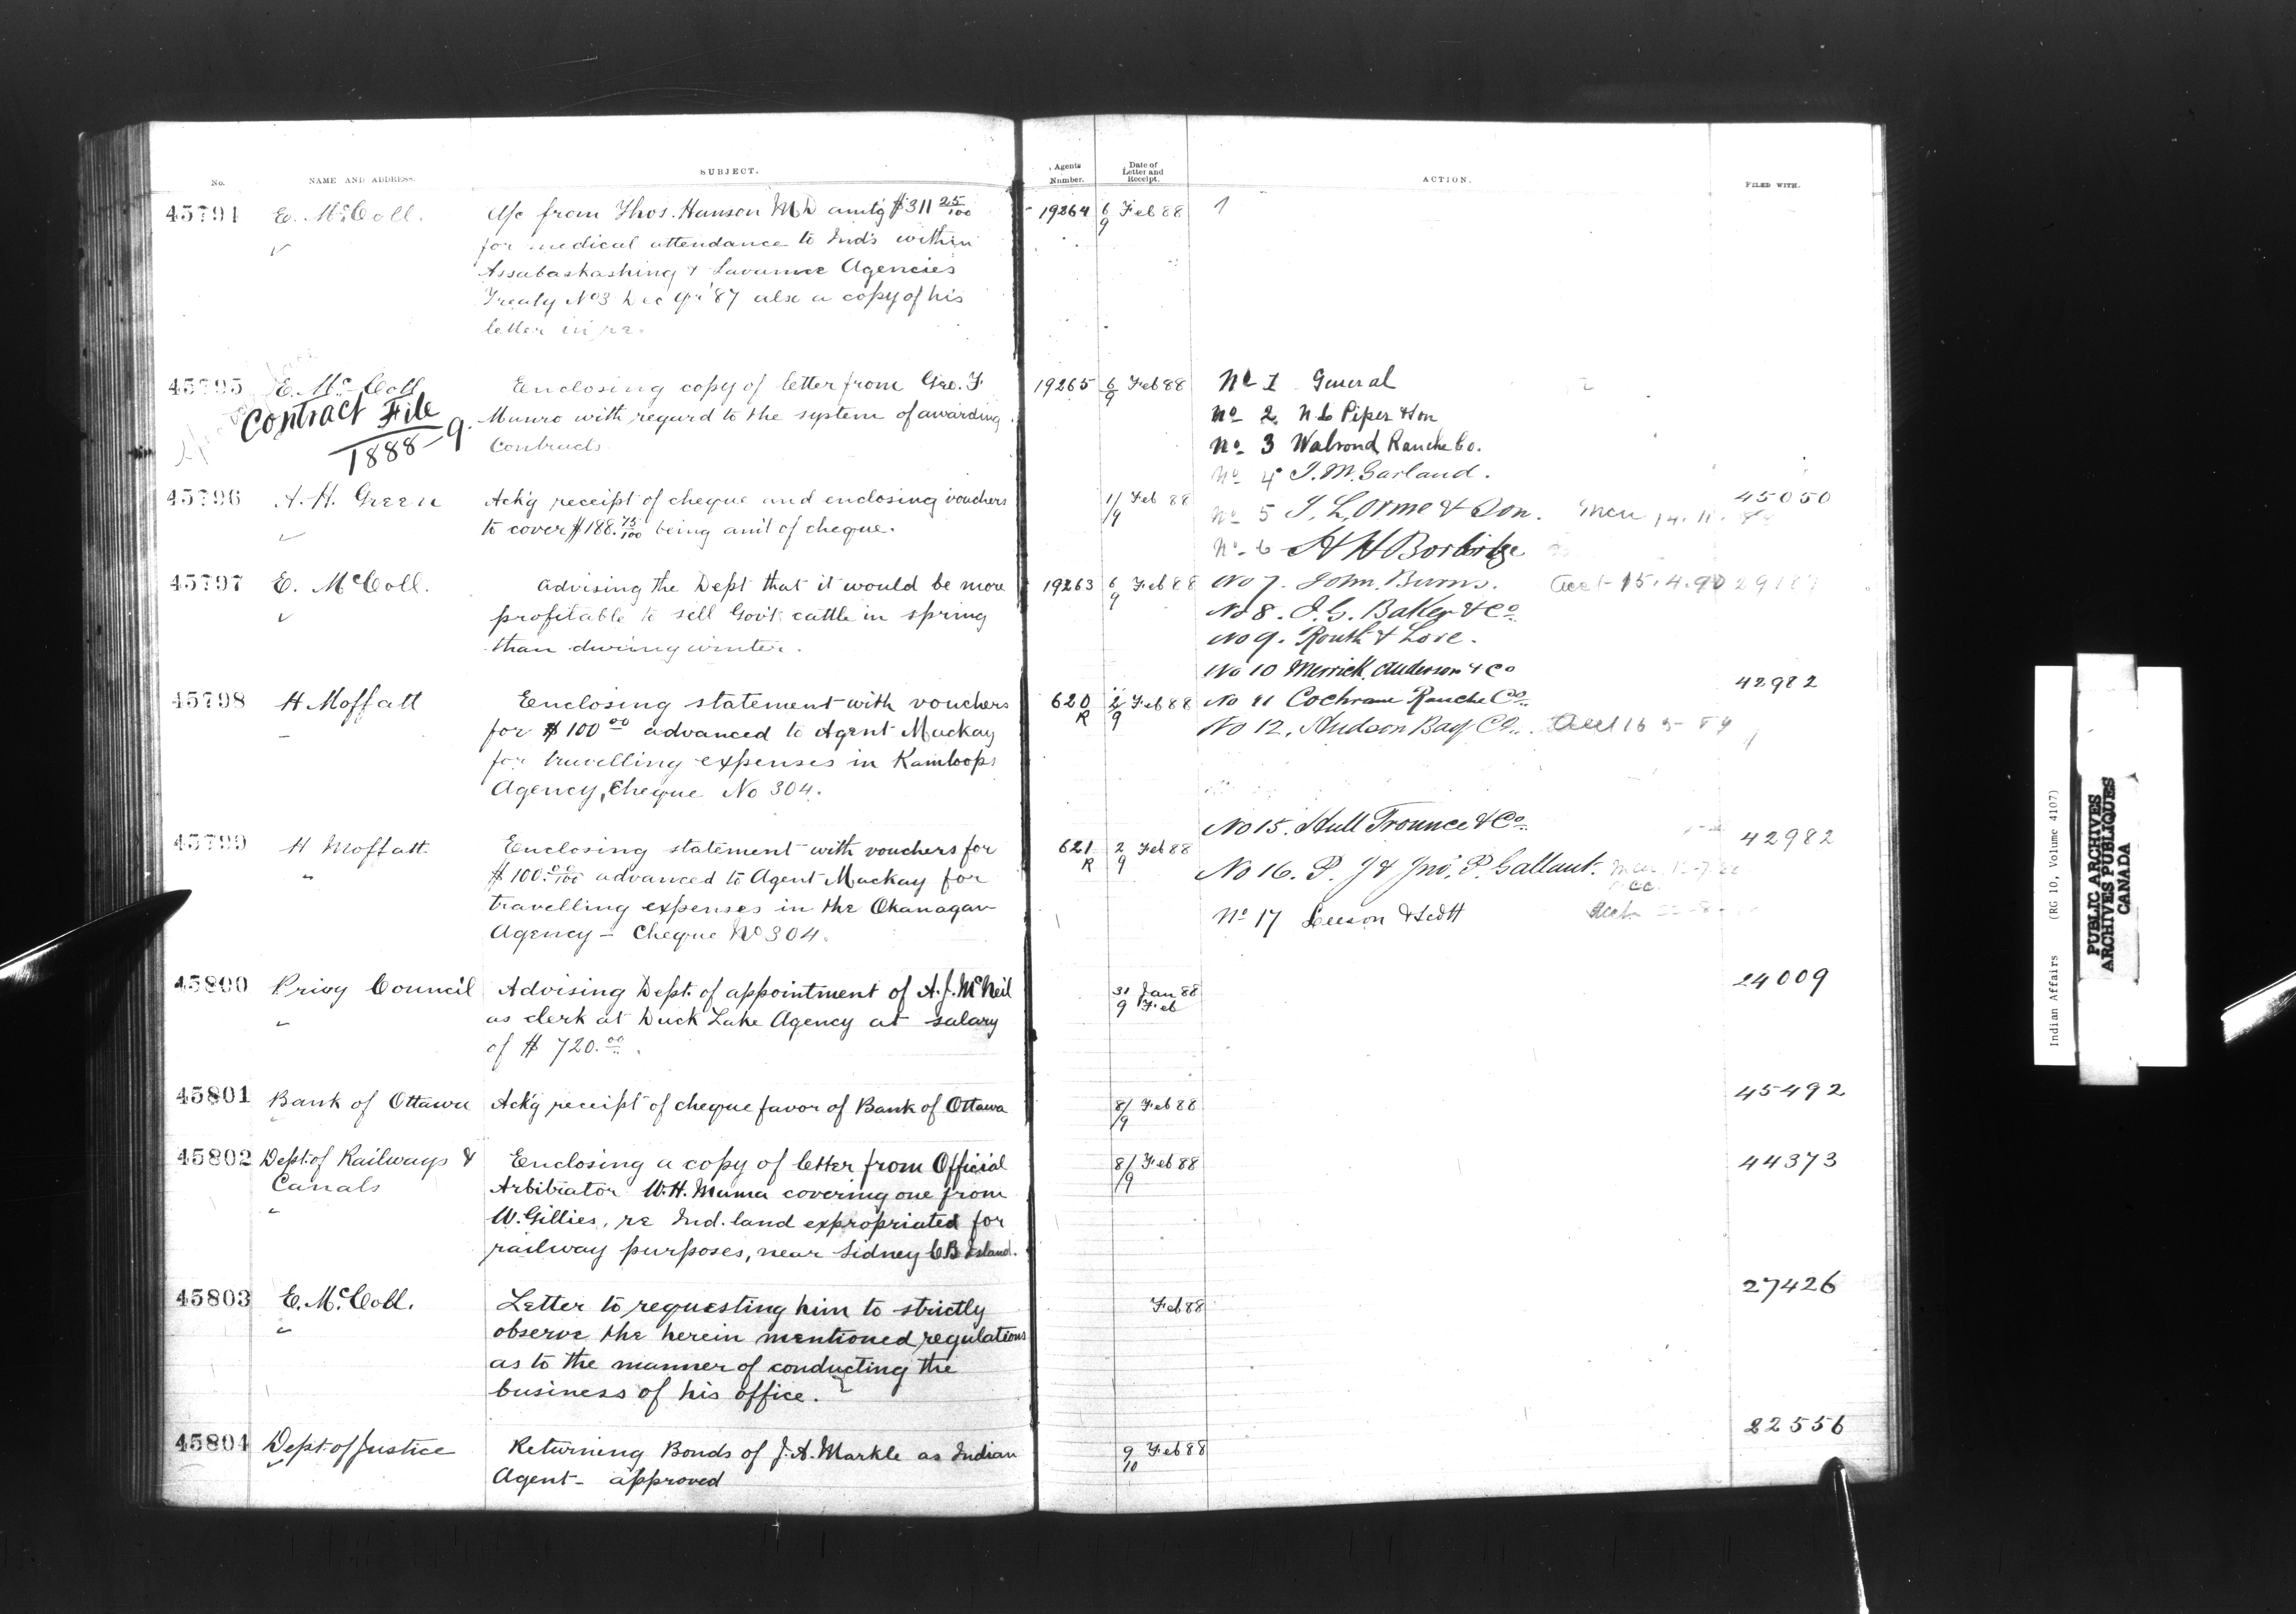 No. NAME AND ADDRESS. SUBJECT. Agents Number. Date of Letter and Receipt. ACTION. FILED WITH.
45794 E. McColl. A/c from Thos. Hanson MD amt'g $311 25/100 19264 6/9 Feb 88 1
for medical attendance to Inds within
Assabaskashing & Agencies
Treaty No3 Dec qr '87 also a copy of his
letter in re.
45795 E. McColl Enclosing copy of letter from Geo. F 19265 6/9 Feb 88
Contract File Munro with regard to the system of awarding
1888-9. Contracts
No 1 General
No 2 N.C Piper & Son
No 3 Walrond Ranche Co.
No 4 T. M. Garland.
45796 A. H. Green Ack'g receipt of cheque and enclosing vouchers 1/9 Feb 88 45050
to cover $188. 75/100 being am't of cheque.
No 5 J. L. Orme & Son.
No. 6 H H Borbridge
45797 E. McColl. Advising the Dept that it would be more 19263 6/9 Feb 88
profitable to sell Gov't cattle in spring
than during winter.
No 7. John Burns. 15.4.90
No 8. I. G. Baker & Co.
No 9. Routh & Love.
No 10 Merrick, Anderson & Co
45798 H Moffatt Enclosing statement with vouchers 620 R 2/9 Feb 88 42982
for $100 00 advanced to Agent Mackay
for travelling expenses in Kamloops
Agency, Cheque No 304.
No 11 Cochrane Ranche Co.
No 12. Hudson Bay Co.
No 15. Hull Trounce & Co.
45799 H Moffatt. Enclosing statement with vouchers for 621 R 2/9 Feb 88 42982
$100. 00/100 advanced to Agent Mackay for
travelling expenses in the Okanagan
Agency - Cheque No 304.
No 16. P. J & Jno. P. Gallant.
No 17 Leeson & Scott
45800 Privy Council Advising Dept. of appointment of A. J. McNeil 31 Jan 88 9 Feb 24009
as clerk at Duck Lake Agency at salary
of $ 720. 00.
45801 Bank of Ottawa Ack'g receipt of cheque favor of Bank of Ottawa 8/9 Feb 88 45492
45802 Dept. of Railways & Enclosing a copy of letter from Official 8/9 Feb 88 44373
Canals Arbitrator W. H. covering one from
W. Gillies, re Ind. land expropriated for
railway purposes, near Sidney C B Island.
45803 E. McColl. Letter to requesting him to strictly Feb 88 27426
observe the herein mentioned regulations
as to the manner of conducting the
business of his office.
45804 Dept. of Justice Returning Bonds of J. A. Markle as Indian 9/10 Feb 88 22556
Agent - approved
Indian Affairs (RG 10, Volume 4107)
PUBLIC ARCHIVES
ARCHIVES PUBLIQUES
CANADA